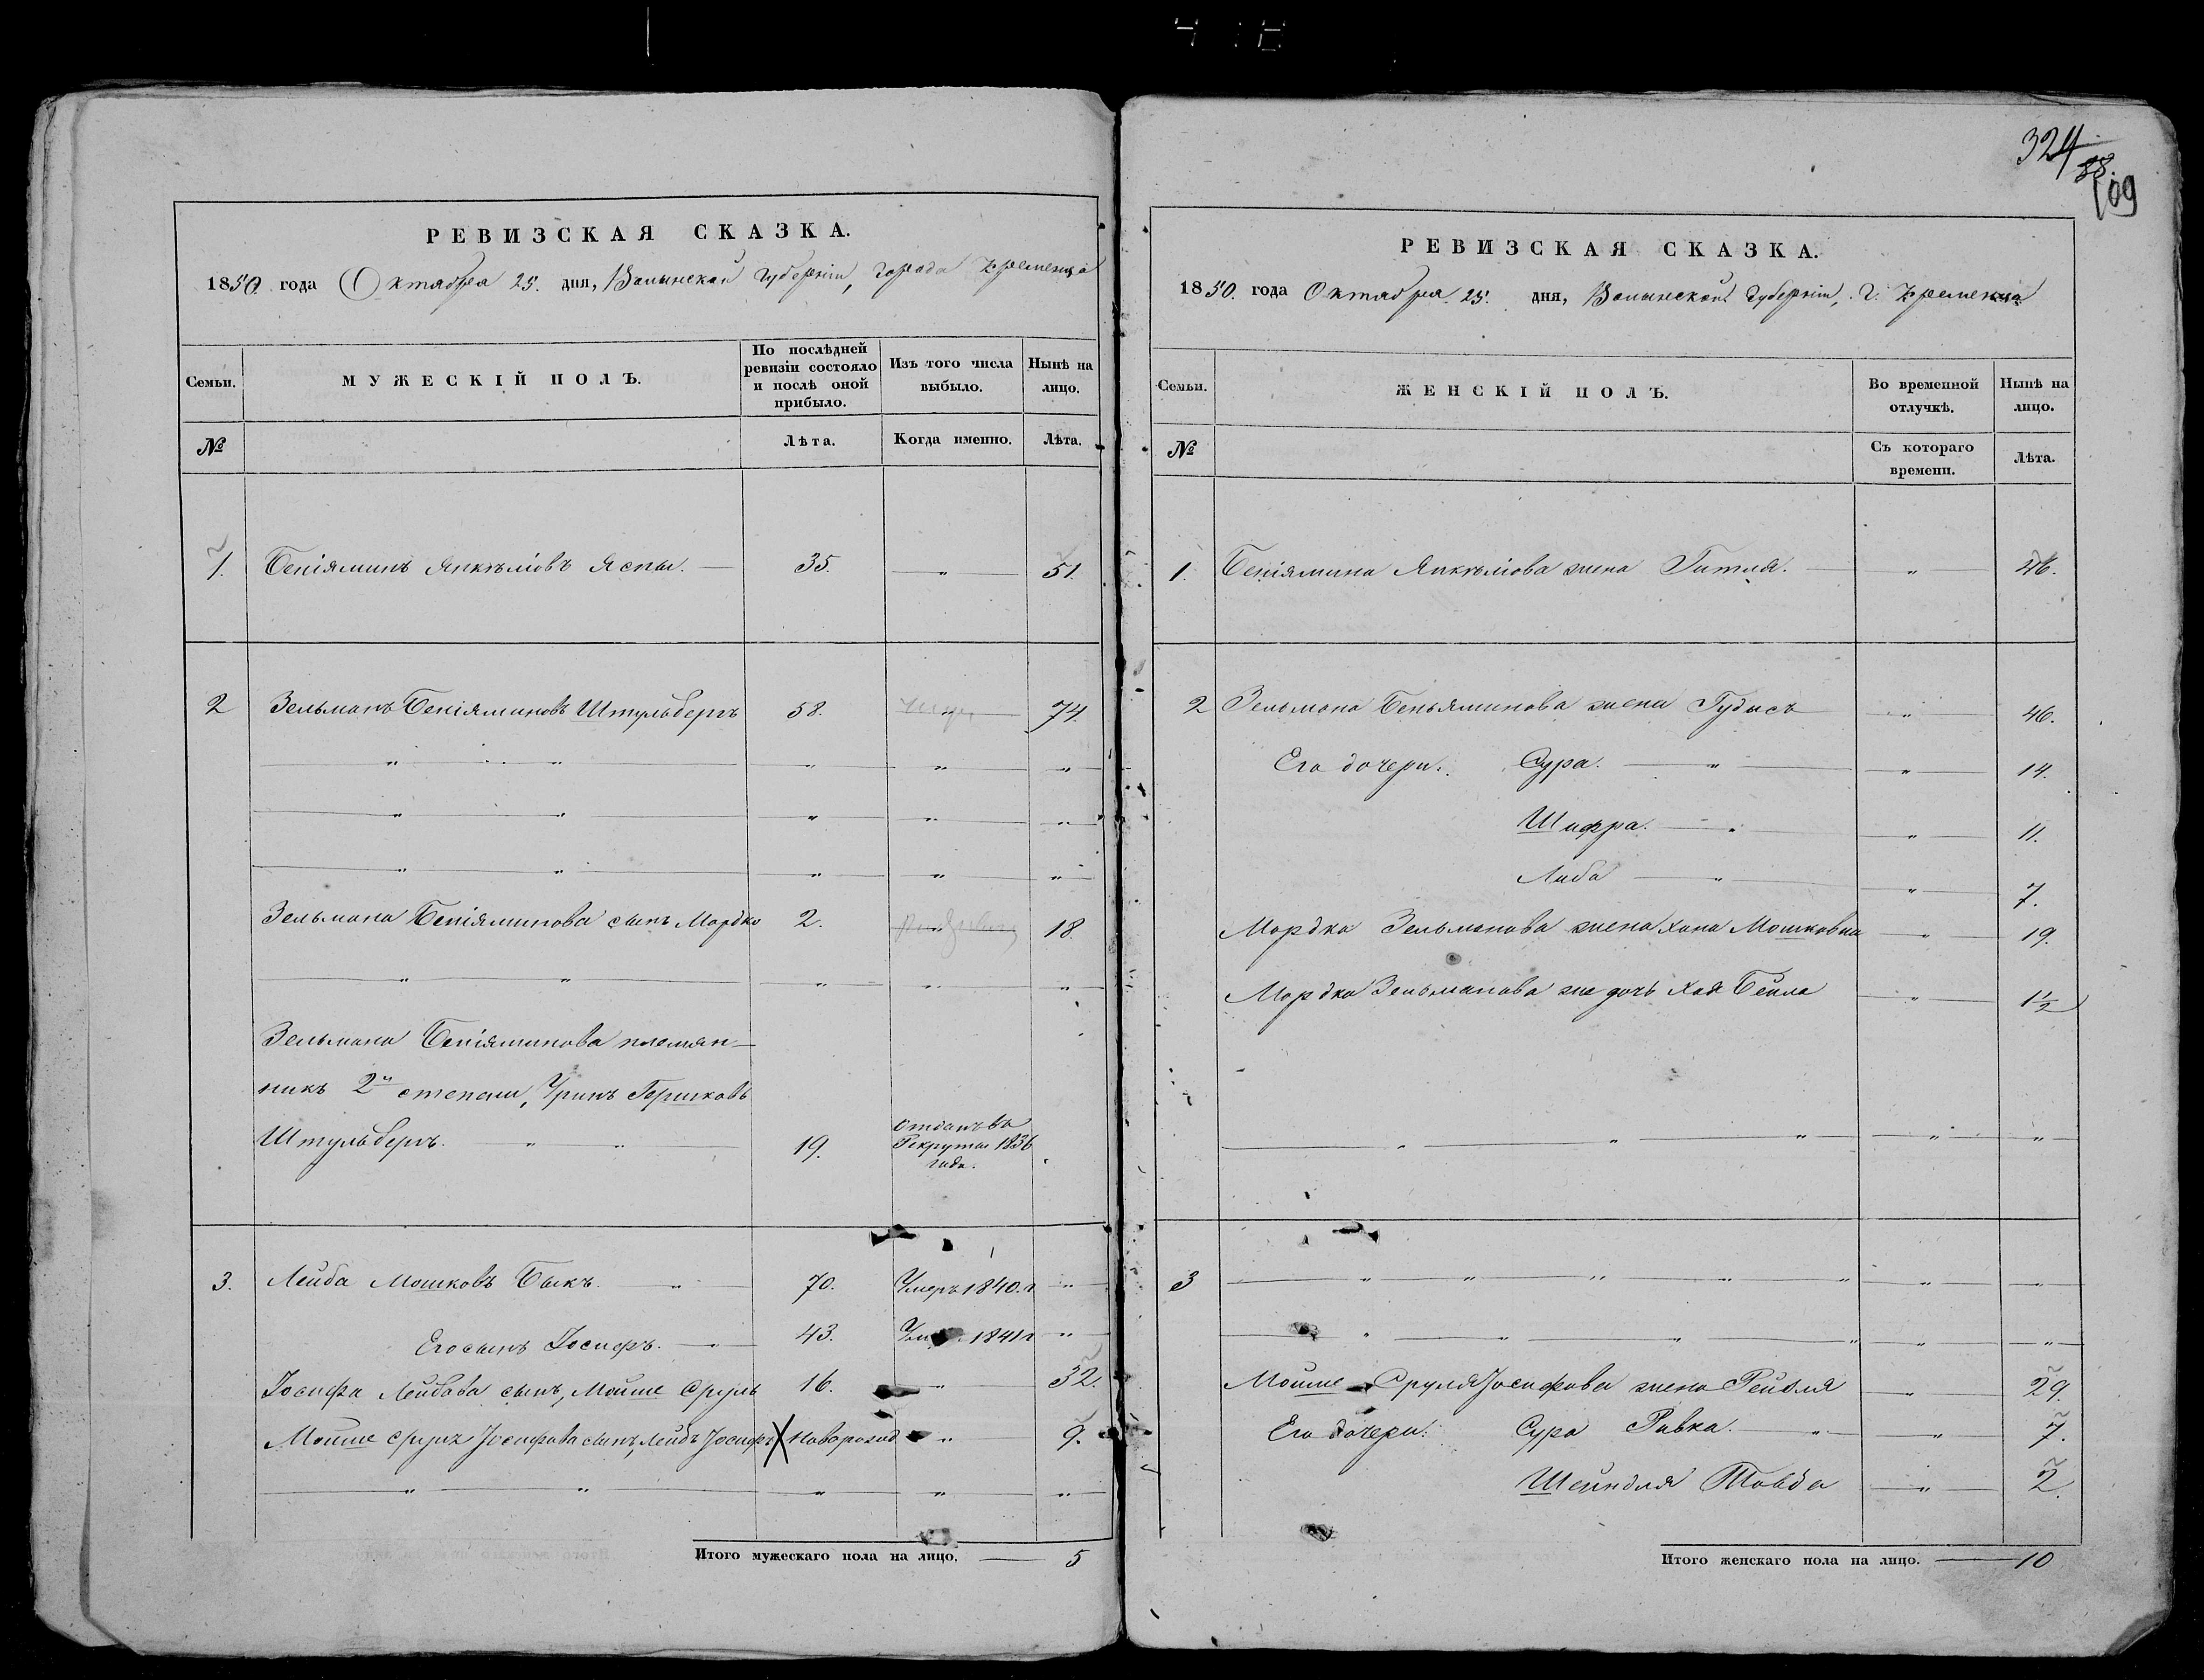 324
88.
109
РЕВИЗСКАЯ СКАЗКА.
1850. года Октября 25. дня, Волынской Губерніи, города Кременца
Семьи.
МУЖЕСКІЙ ПОЛЪ.
По послѣдней ревизіи состояло и послѣ оной прибыло.
Изъ того числа выбыло.
Нынѣ на лицо.
№
Лѣта.
Когда именно.
Лѣта.
1. Беніяминъ Янкеліовъ Яспы. 35. " 51.
2 Зельманъ Беніяминовъ Штульбергъ 58. " 74.
" " " " "
" " " " "
" " " " "
Зельмана Беніяминова сынъ Мордко 2. " 18.
" " " " "
Зельмана Беніяминова племян-
никъ 2й степени, Гершковъ
Штульбергъ. " " 19. отданъ въ Рекруты 1836 года.
3. Лейба Мошковъ Быкъ. " 70. Умеръ 1840.г "
Его сынъ Іосифъ. " 43. 1841г "
Іосифа Лейбова сынъ, Мошие Сруль 16. " 32.
Мошие Сруля Іосифова сынъ, Лейбъ Іосифъ Новорожд " 9.
" " " " "
Итого мужескаго пола на лицо. 5
РЕВИЗСКАЯ СКАЗКА.
1850. года Октября 25. дня, Волынской Губерніи, г. Кременца
Семьи.
ЖЕНСКІЙ ПОЛЪ.
Во временной отлучкѣ.
Нынѣ на лицо.
№
Съ котораго времени.
Лѣта.
1. Беніямина Янкеліова жена Гитля. " 46.
2 Зельмана Беньяминова жена Гудысъ " 46.
Его дочери: Сура. " " 14.
Шифра. " " 11.
Либа " " 7.
Мордка Зельманова жена Хана Мошковна " 19.
Мордка Зельманова же дочь Хая Бейла " 1½
" " " " "
3 " " " " " " "
" " " " " "
Мошие Сруля Іосифова жена Рейзля " 29.
Его дочери: Сура Ривка. " " 7.
Шейндля Товба " 2.
Итого женскаго пола на лицо. 10